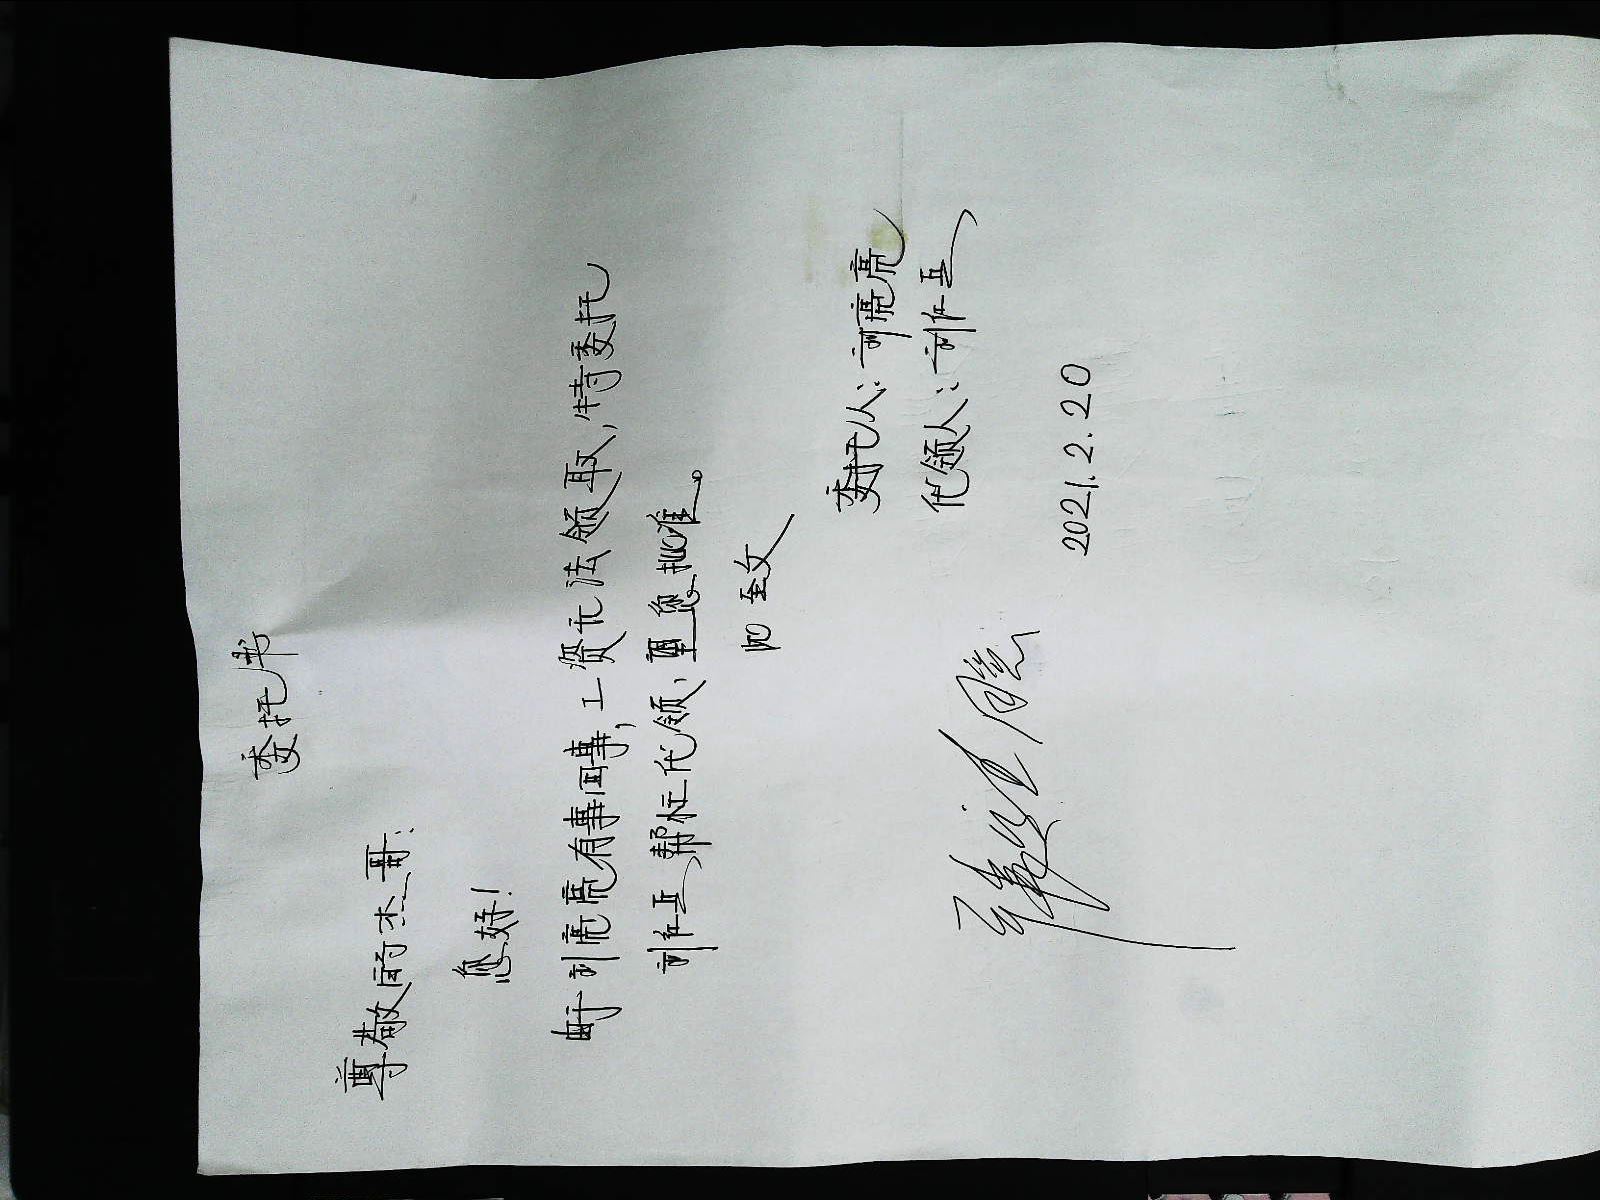 委托书
尊敬的杰哥：
您好！
由于刘亮亮有事回事，工资无法领取，特委托
刘红五，帮忙代领，望您批准。
此致
委托人：刘亮亮
代领人：刘红五
2021.2.20